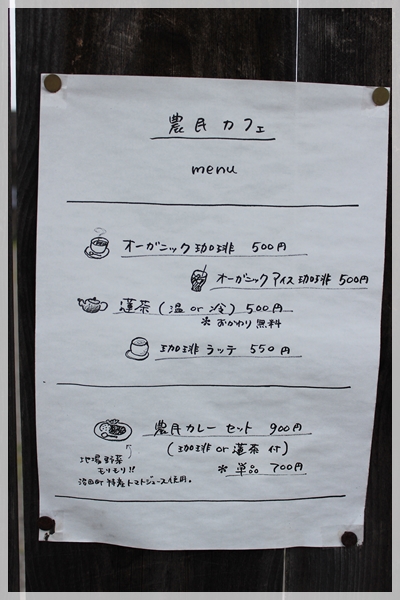 農民カフェ
menu
オーガニック珈琲 500円
オーガニックアイス珈琲 500円
蓮茶(温or冷)500円
*おかわり無料
珈琲ラッテ 550円
農民カレーセット 900円
(珈琲or蓮茶付)
*単品 700円
地場野菜
もりもり!!
特産トマトジュース使用。